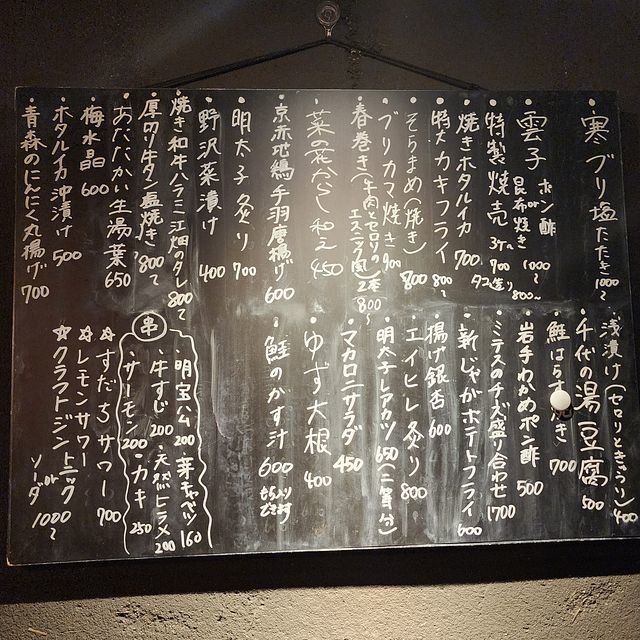 寒ブリ塩たたき 1000〜
雲子 ポン酢 or 昆布焼き 1000〜
特製焼売 3ヶ 900 タコ坐り 800〜
焼きホタルイカ 700
特大カキフライ 800〜
そらまめ(焼き) 800
ブリカマ焼き 900
春巻き(牛肉とセロリのエスニック風) 2本 800〜
菜の花からし和え 450
京赤地鶏手羽唐揚げ 600
明太子炙り 700
野沢菜漬け 400
焼き和牛ハラミ 江畑のタレ 800〜
厚切り牛タン塩焼き 800〜
あたたかい生湯葉 650
梅水晶 600
ホタルイカ沖漬け 500
青森のにんにく丸揚げ 700
浅漬け(セロリときゅうり) 400
千代の湯豆腐 500
鮭はらすき 700
岩手わかめポン酢 500
ミテスのチーズ盛り合わせ 1700
新じゃがポテトフライ 600
揚げ銀杏 600
エイヒレ炙り 800
明太子レアカツ 650(二等分)
マカロニサラダ 450
ゆず大根 400
鮭のかす汁 600
串
・明宝ハム 200 ・芽キャベツ 160
・牛すじ 200 ・天然ヒラメ 200
・サーモン 200 ・カキ 250
☆すだちサワー 700
☆レモンサワー
☆クラフトジントニック or ソーダ 1000〜